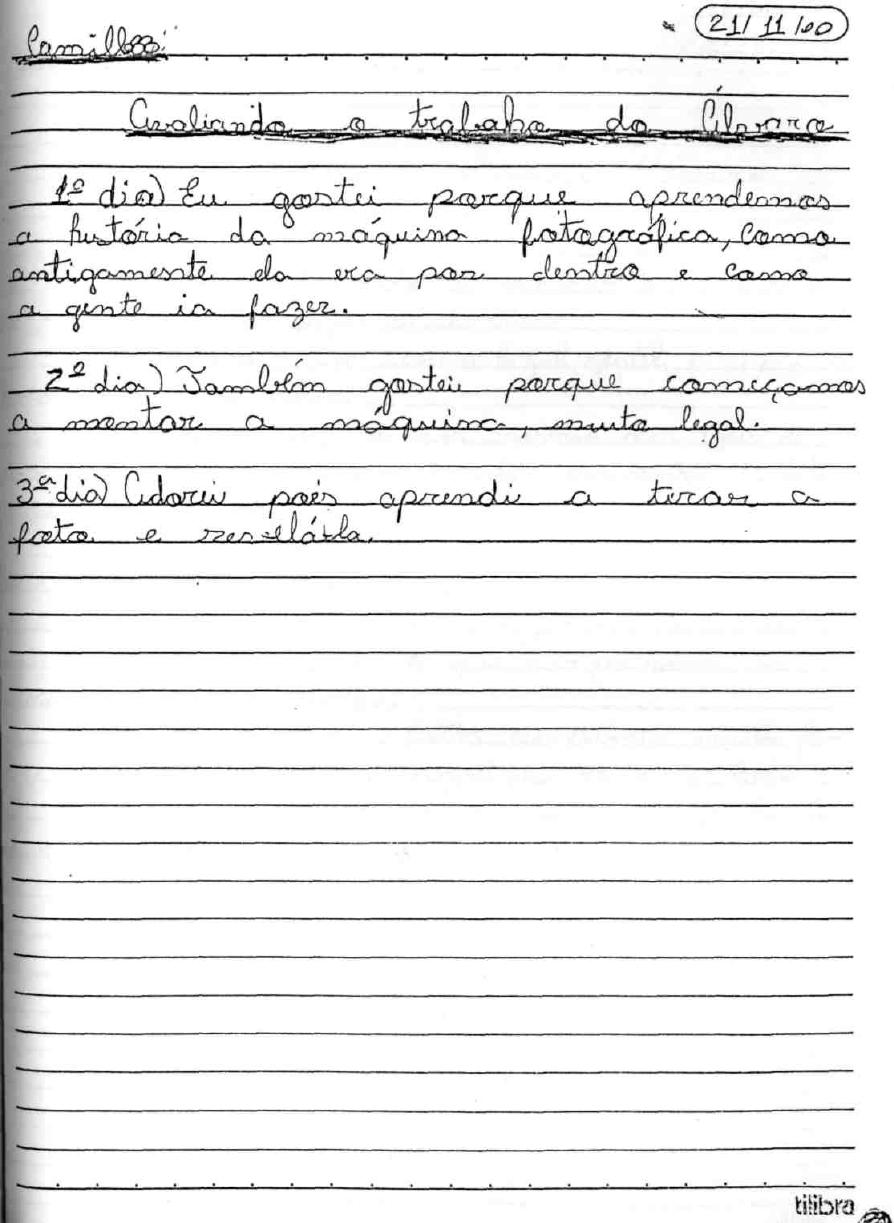 Camilla 21/11/00
Avaliando o trabalho do Álvaro
1º dia) Eu gostei porque aprendemos
a história da máquina fotográfica, como
antigamente ela era por dentro e como
a gente ia fazer.
2º dia) Também gostei porque começamos
a montar a máquina, muito legal.
3ª dia) Adorei pois aprendi a tirar a
foto e revelá-la.
tilibra